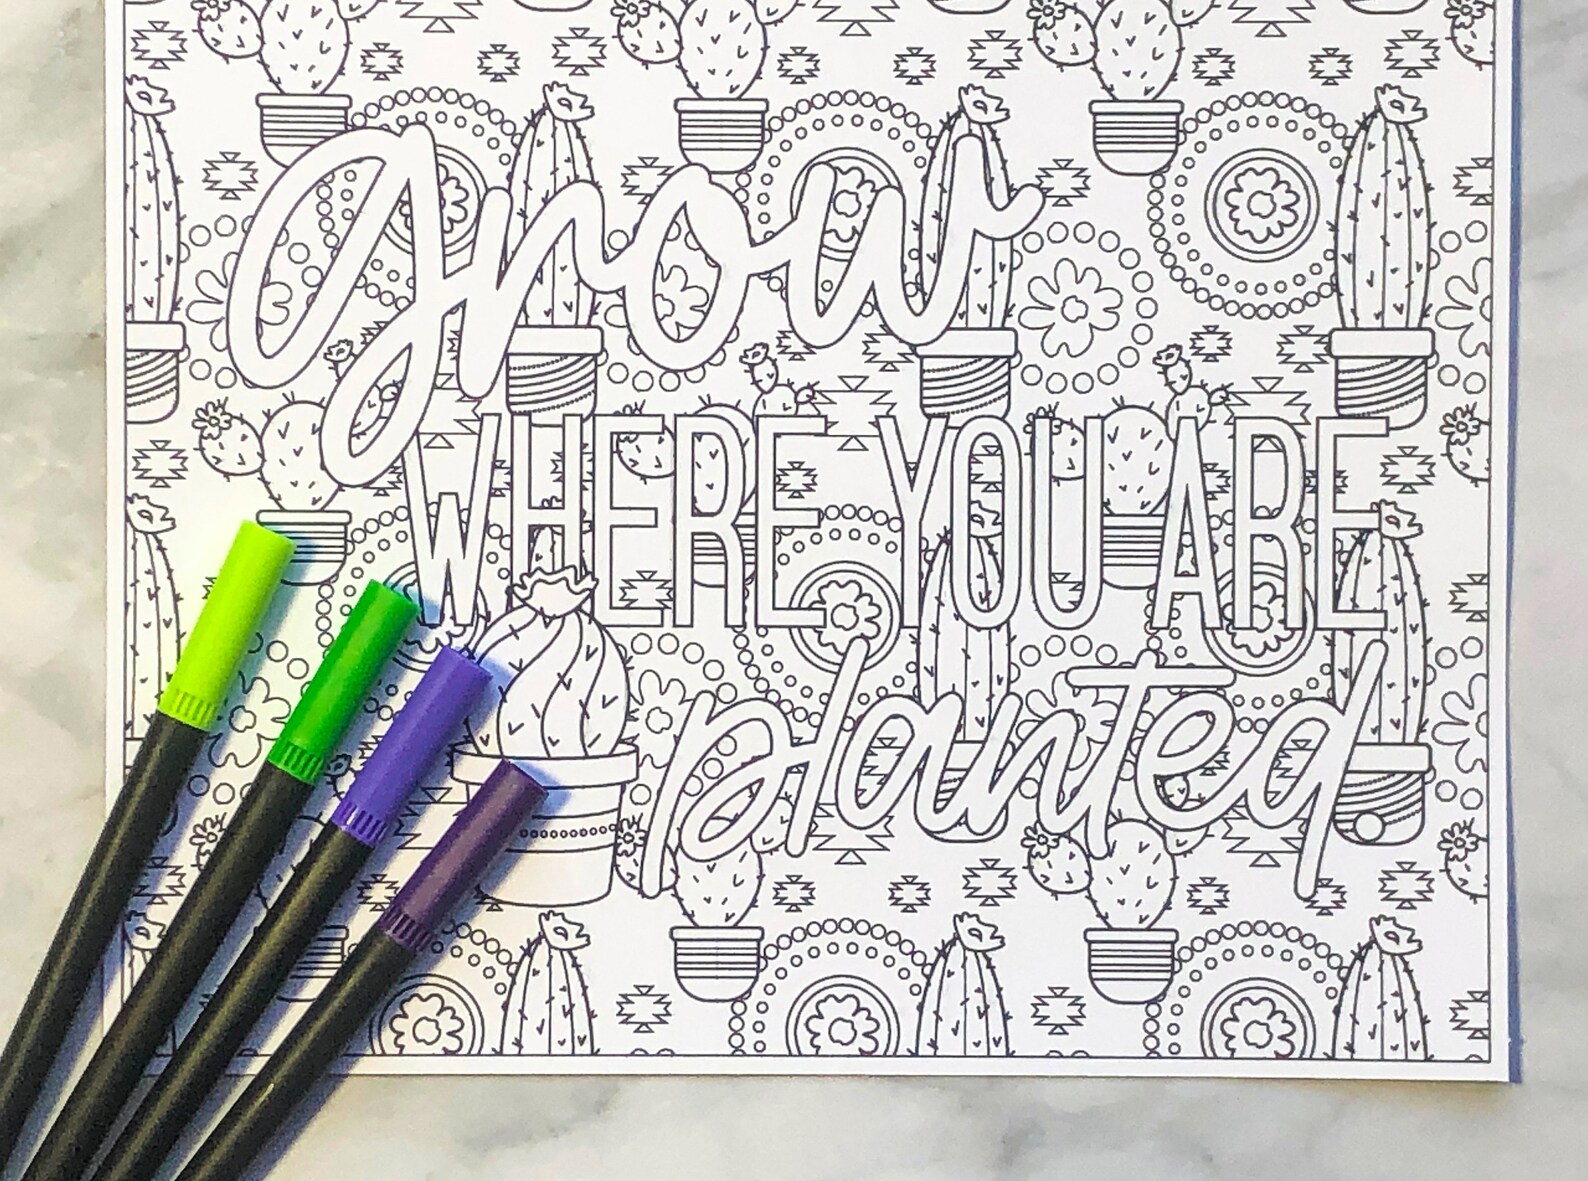 grow
WHERE YOU ARE
planted